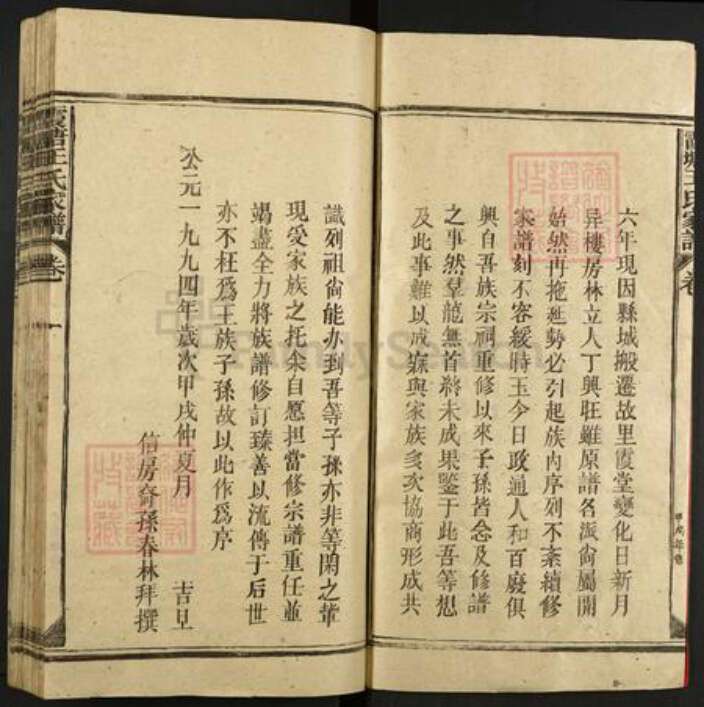 六年現因縣城搬遷故里霞堂變化日新月
异樓房林立人丁興旺雖原譜各派尚屬開
始然再拖延勢必引起族內序列不紊續修
家譜刻不容緩時玉今日政通人和百廢俱
興自吾族宗祠重修以來子孫皆念及修譜
之事然羣龍無首將未成果鑒于此吾等想
及此事難以成寐與家族多次協商形成共
識列祖尙能亦到吾等子孫亦非等閑之輩
現受家族之托余自愿担當修宗譜重任並
竭盡全力將族譜修訂臻善以流傳于后世
亦不枉爲王族子孫故以此作爲序
公元一九九四年歲次甲戌仲夏月 吉旦
信房裔孫春林拜撰
王氏家譜
卷一
王氏家譜
卷